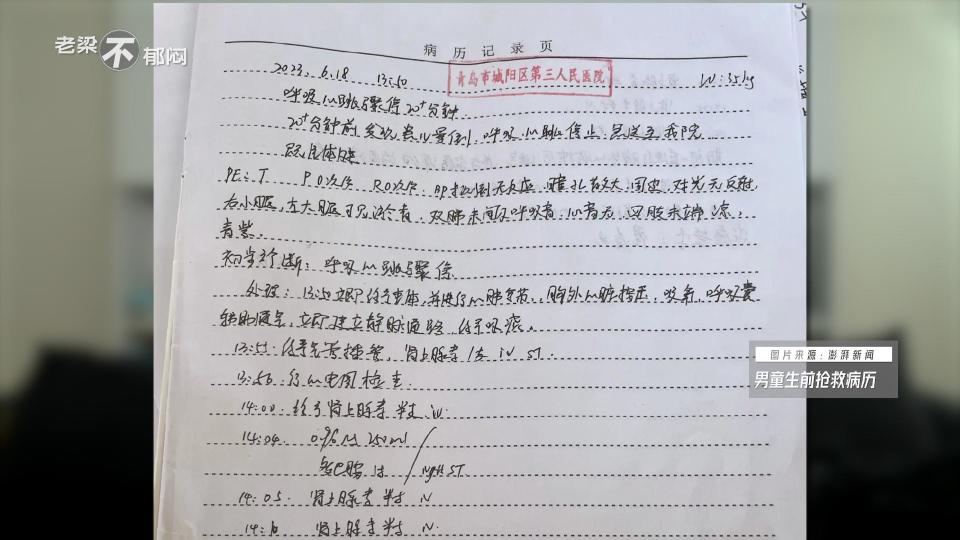 老梁不郁闷
病历记录页
2023.6.18 13:50 青岛市城阳区第三人民医院 W:35kg
呼吸心跳骤停20+分钟.
20+分钟前发现患儿晕倒,呼吸心跳停止,急送至我院
PE:T P 0次/分 R 0次/分 BP 无反应,瞳孔散大,固定,对光无反射,
右小腿,左大腿可见 青,双肺未闻及呼吸音,心音无,四肢末端凉,
青紫.
初步诊断:呼吸心跳骤停
处理:13:50立即 并进行心肺复苏,胸外心脏按压,吸氧,呼吸囊
辅助通气,立即建立静脉通路, 吸痰.
13:55 气管插管,肾上腺素1支 iv ST.
13:56.行心电图检查.
14:00 给予肾上腺素半支 iv.
14:04 0.9% NS 250ml
多巴胺 1支 ivgtt ST
14:05. 肾上腺素半支 iv
14:10 肾上腺素半支 iv.
图片来源:澎湃新闻
男童生前抢救病历